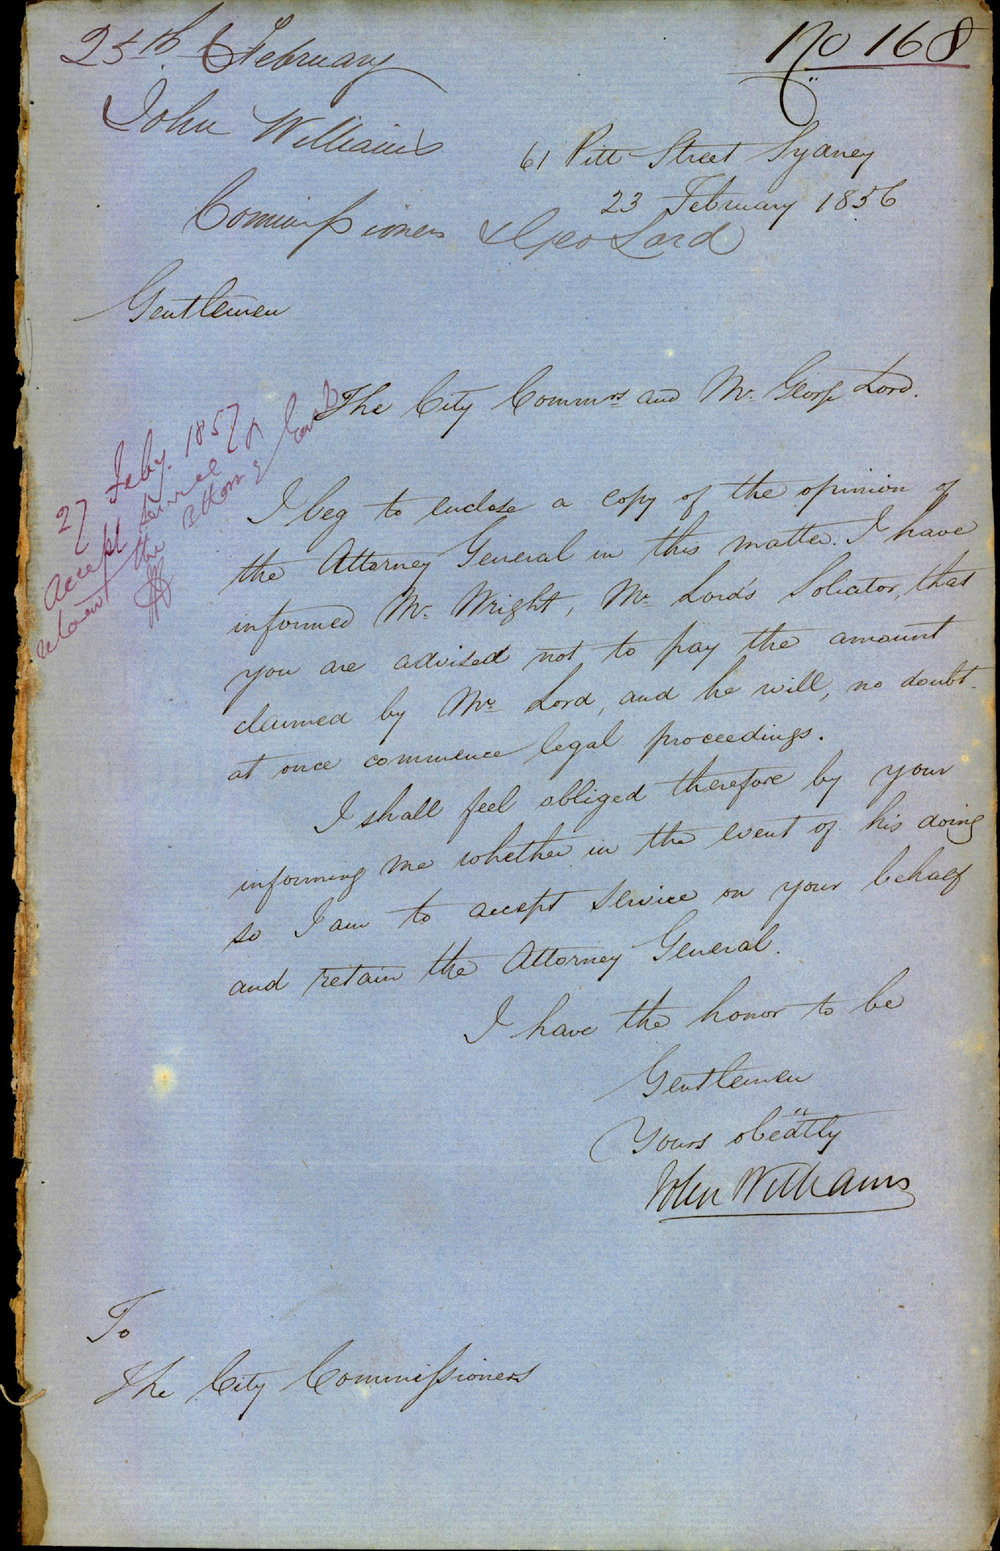 25th February
No 168
John Williams
61 Pitt Street Sydney
23 February 1856
Commissioners & Geo Lord
Gentlemen
The City Commrs and Mr. George Lord.
27 Feby. 1857
accept service &
retain the Attorny Genl
I beg to enclose a copy of the opinion of
the Attorney General in this matter. I have
informed Mr. Wright, Mr Lord's Solicitor, that
you are advised not to pay the amount
claimed by Mr Lord, and he will, no doubt
at once commence legal proceedings.
I shall feel obliged therefore by your
informing me whether in the event of his doing
so I am to accept service on your behalf
and retain the Attorney General.
I have the honor to be
Gentlemen
Yours obedtly
John Williams
To
The City Commissioners